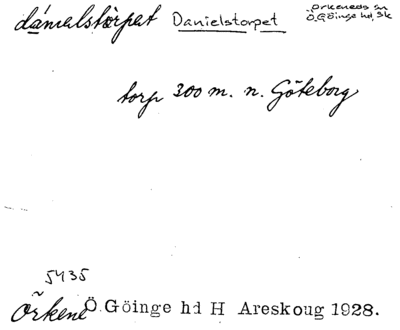 dánialstòrpat Danielstorpet Örkeneds sn
Ö. Göinge hd, Sk
torp 300 m. n. Göteborg
5435
Örkene Ö. Göinge hd H Areskoug 1928.